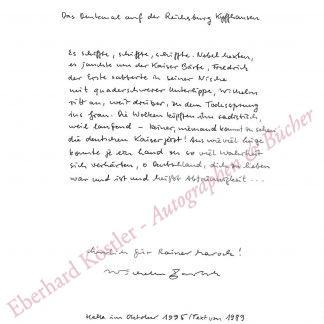 Das Denkmal auf der Reichsburg Kyffhausen
Es schiffte, schiffte, schiffte. Nebel hexten,
es jauchte um der Kaiser Bärte, Friedrich
der Erste sabberte in seiner Nische
mit quaderschwerer Unterlippe, Wilhelm
ritt an, weit drüber, zu dem Todessprung
ins grau. Die Wolken köpften ihn sadistisch,
weil laufend – keiner, niemand kommt zu sehen
die deutschen Kaiser jetzt! Aus wieviel Lüge
konnte je ein Land so so viel Wahrheit
sich verhärten, o Deutschland, dich zu lieben
war und ist und heißt Abtaunigkeit ...
für Rainer
Wilhelm
Halle im Oktober 1995 / Text von 1989
Eberhard Köstler - Autographen & Bücher